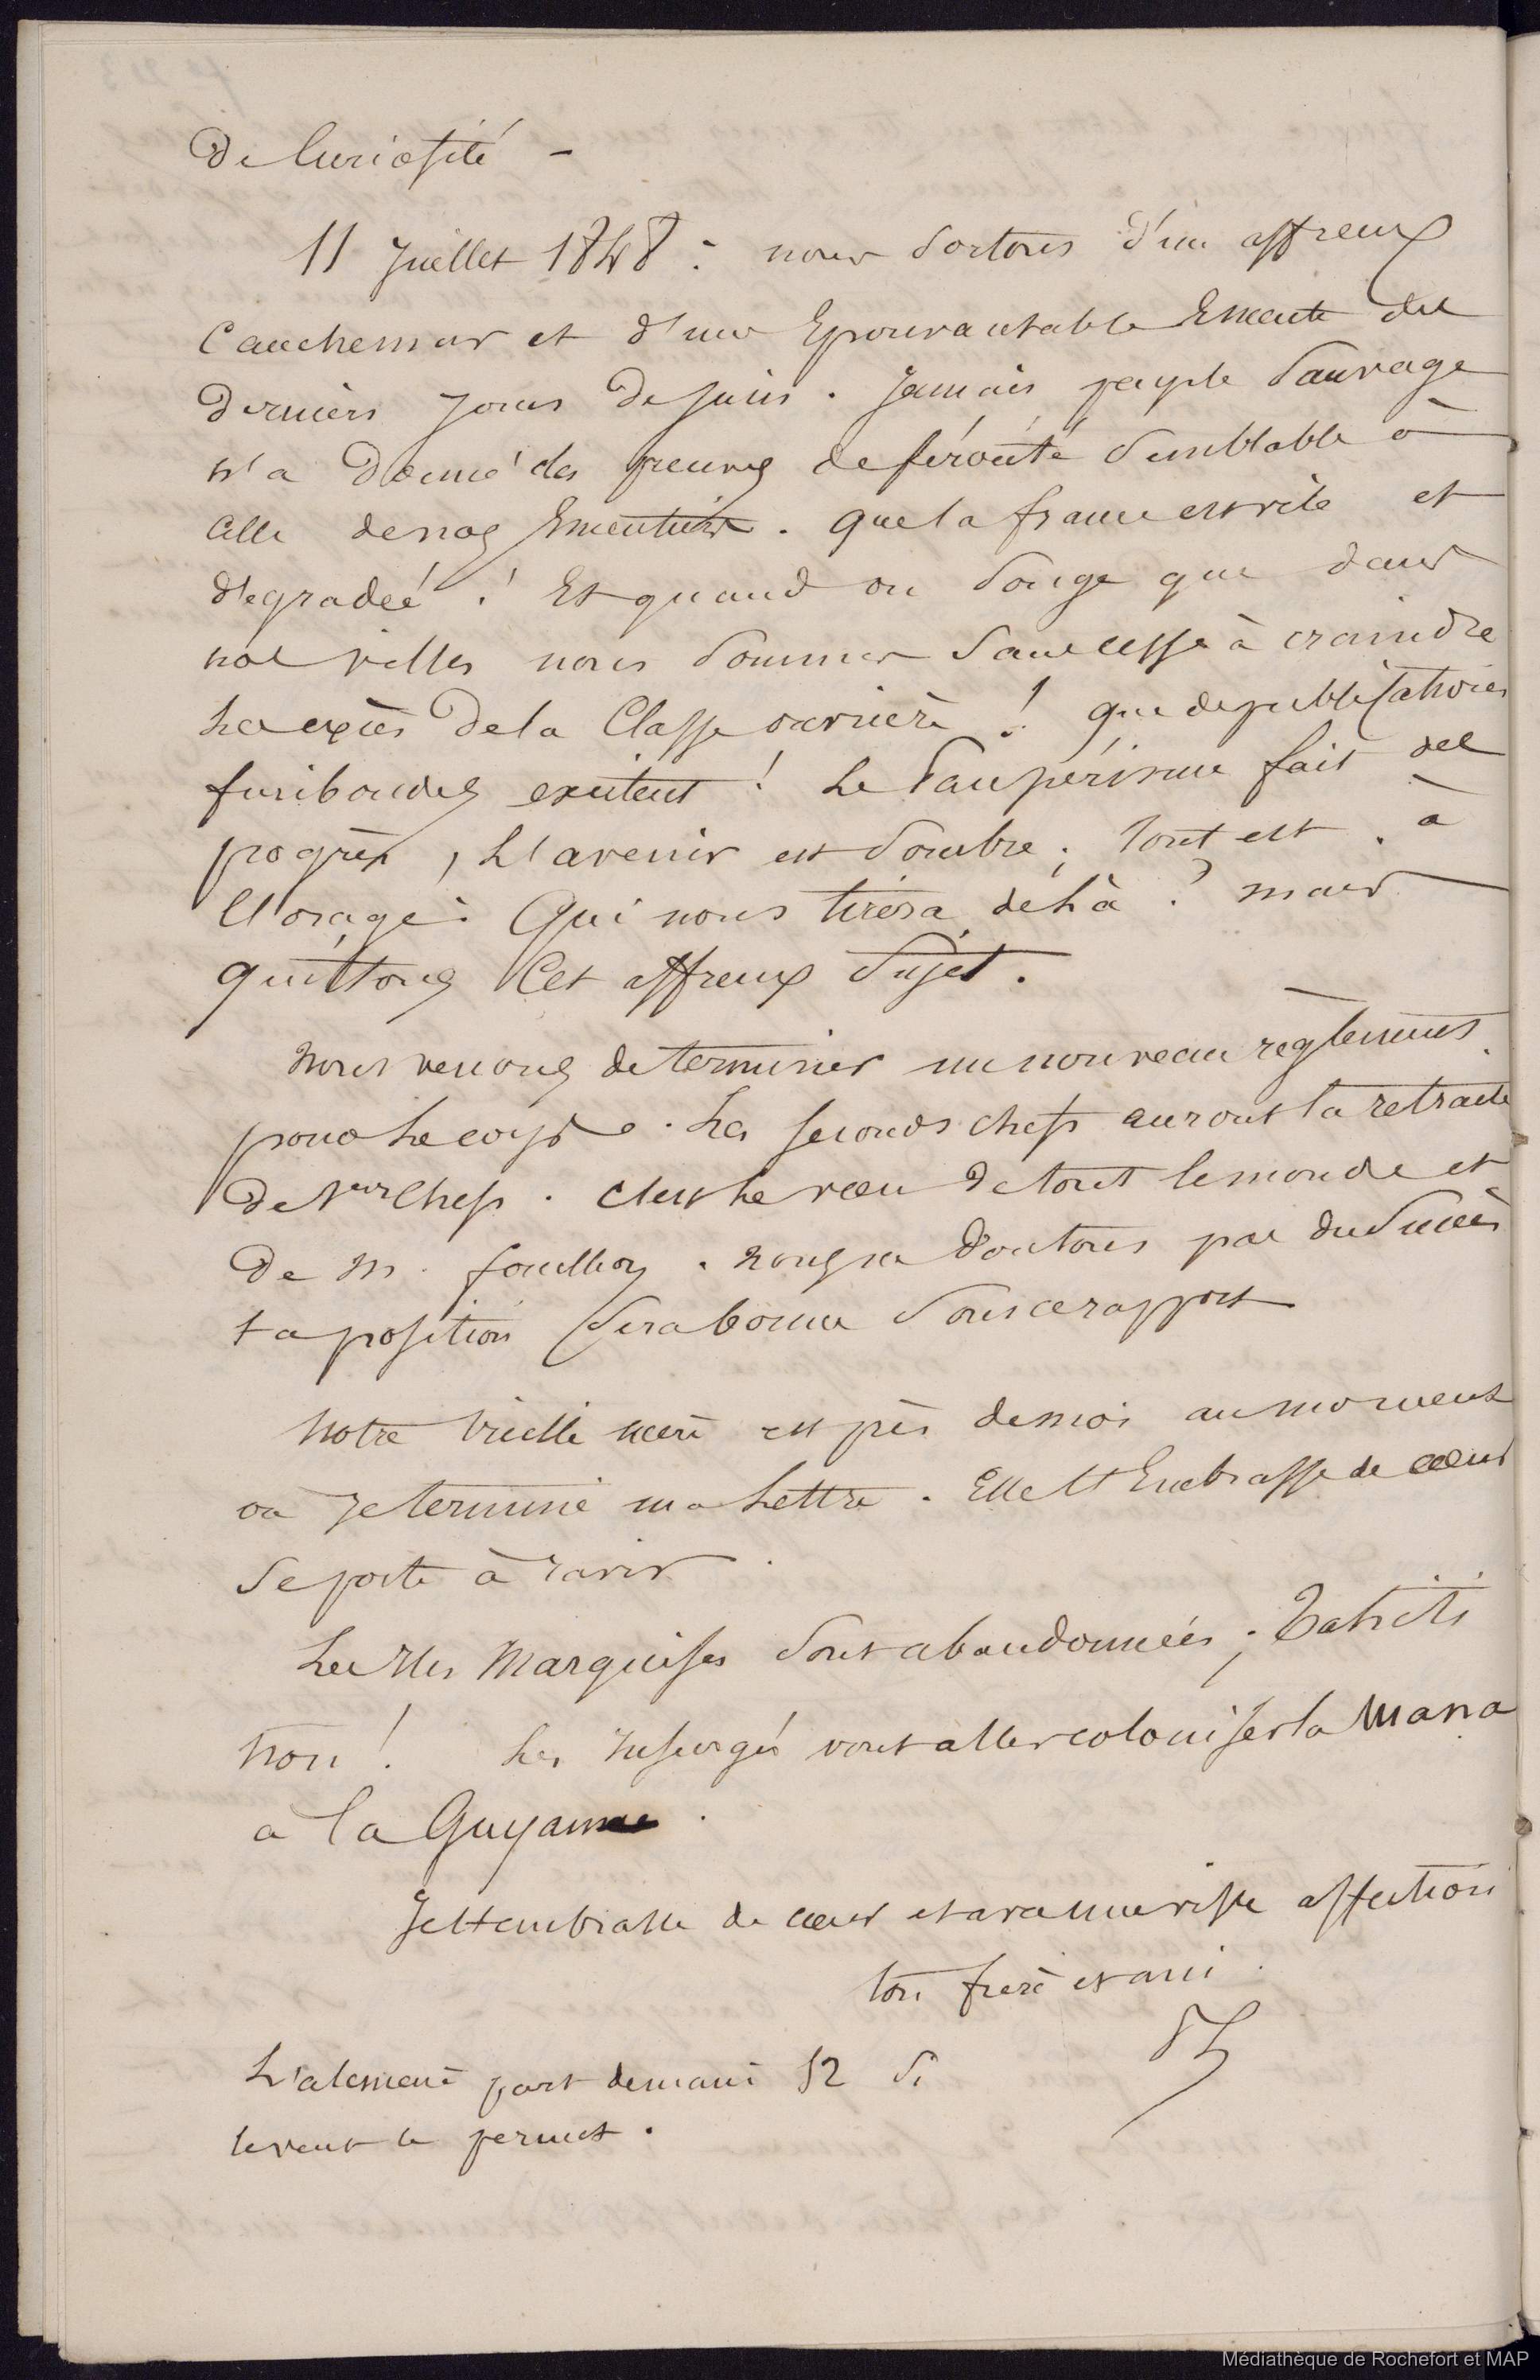 de Curiosité –
11 Juillet 1848 : nous Sortons d'un affreux
Cauchemar et d'une Epouvantable Emeute des
derniers Jours de Juin . Jamais peuple Sauvage
n'a donné des preuves de férocité Semblable à
Celle de nos Emeutiers . que la france est vile et
dégradée ! Et quand on Songe que dans
nos villes nous Sommes Sans cesse à craindre
Les excès de la Classe ouvrière ! que de publications
furibondes excitent ! Le Paupérisme fait des
progrès , L'avenir est Sombre ; tout est . à
l'orage : Qui nous tirera de Là ? mais
quittons Cet affreux Sujet .
Nous venons de terminer un nouveau règlement
pour Le corps . Les Seconds chefs auront la retraite
de 1ers Chefs . C'est Le vœu de tout le monde et
de M. foullioy . nous ne doutons pas du Succès
ta position Sera bonne Sous ce rapport
Notre vieille mère est près de moi au moment
où Je termine ma Lettre . Elle t'Embrasse de cœur
Se porte à ravir .
Les Iles Marquises Sont abandonnées ; Tahiti
non ! Les Insurgés vont aller coloniser la Mana
a la Guyanne .
Je t'embrasse de cœur et avec une vive affection
ton frère et ami .
L'alcmène part demain 12 Si
le vent le permet .
Médiathèque de Rochefort et MAP